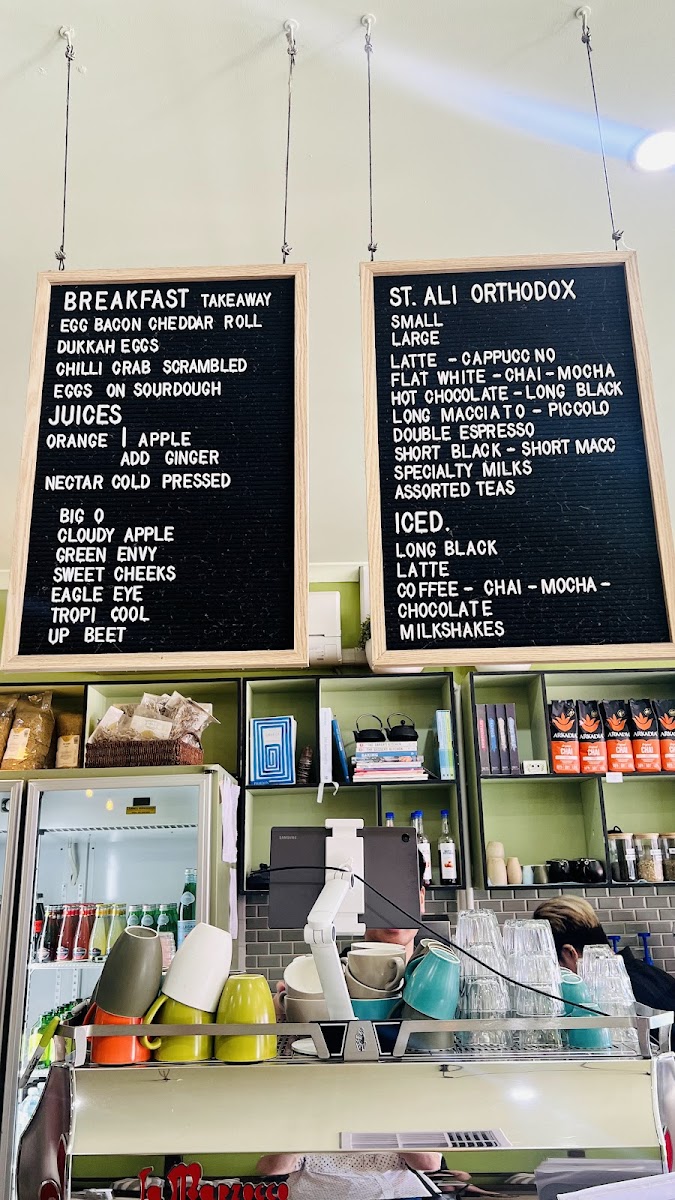 BREAKFAST TAKEAWAY
EGG BACON CHEDDAR ROLL
DUKKAH EGGS
CHILLI CRAB SCRAMBLED
EGGS ON SOURDOUGH
JUICES
ORANGE | APPLE
ADD GINGER
NECTAR COLD PRESSED
BIG O
CLOUDY APPLE
GREEN ENVY
SWEET CHEEKS
EAGLE EYE
TROPI COOL
UP BEET
ST. ALI ORTHODOX
SMALL
LARGE
LATTE - CAPPUCC NO
FLAT WHITE - CHAI - MOCHA
HOT CHOCOLATE - LONG BLACK
LONG MACCIATO - PICCOLO
DOUBLE ESPRESSO
SHORT BLACK - SHORT MACC
SPECIALTY MILKS
ASSORTED TEAS
ICED.
LONG BLACK
LATTE
COFFEE - CHAI - MOCHA -
CHOCOLATE
MILKSHAKES
ARKADIA
CHAI
ARKADIA
CHAI
ARKADIA
CHAI
ARKADIA
CHAI
SAMSUNG
La Marzocco